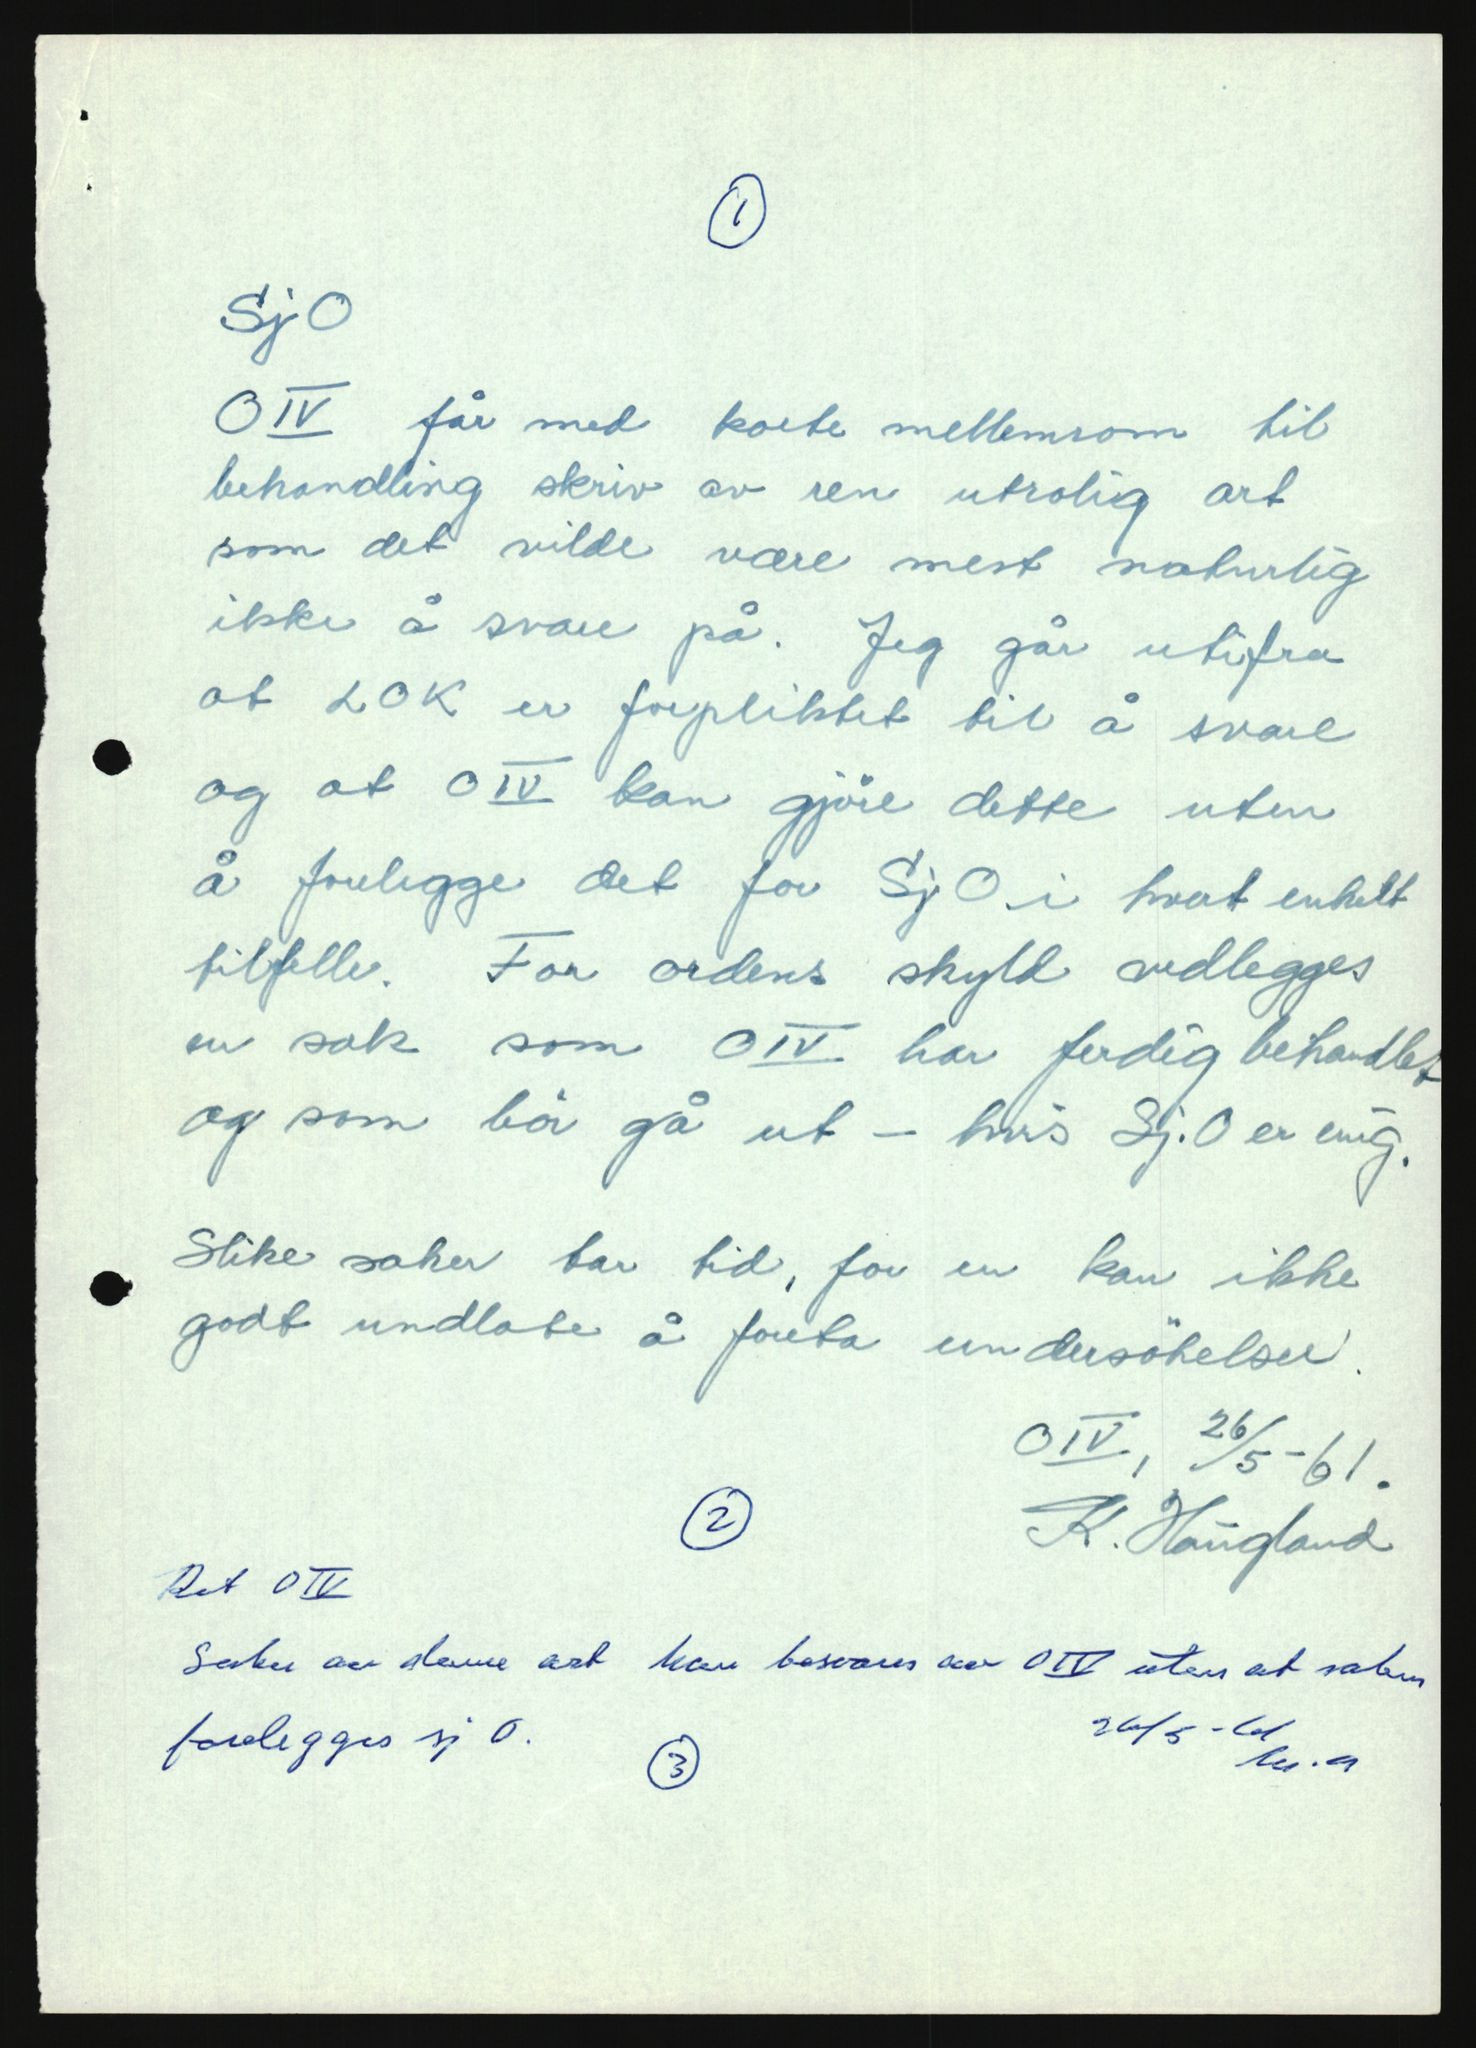 1
Sj O
O IV får med korte mellemrom til
behandling skriv av ren utrolig art
som det vilde være mest naturlig
ikke å svare på. Jeg går utifra
at LOK er forpliktet til å svare
og at O IV kan gjöre dette uten
å forelegge det for Sj O i hvert enkelt
tilfelle. For ordens skyld vedlegges
en sak som O IV har ferdig behandlet
og som bör gå ut – hvis Sj. O er enig.
Slike saker tar tid, for en kan ikke
godt undlate å foreta undersökelser.
O IV, 26/5-61.
K. Haugland
2
Ret O IV
Saker av denne art kan besvares av O IV uten at saken
forelegges sj O.
26/5-61
3